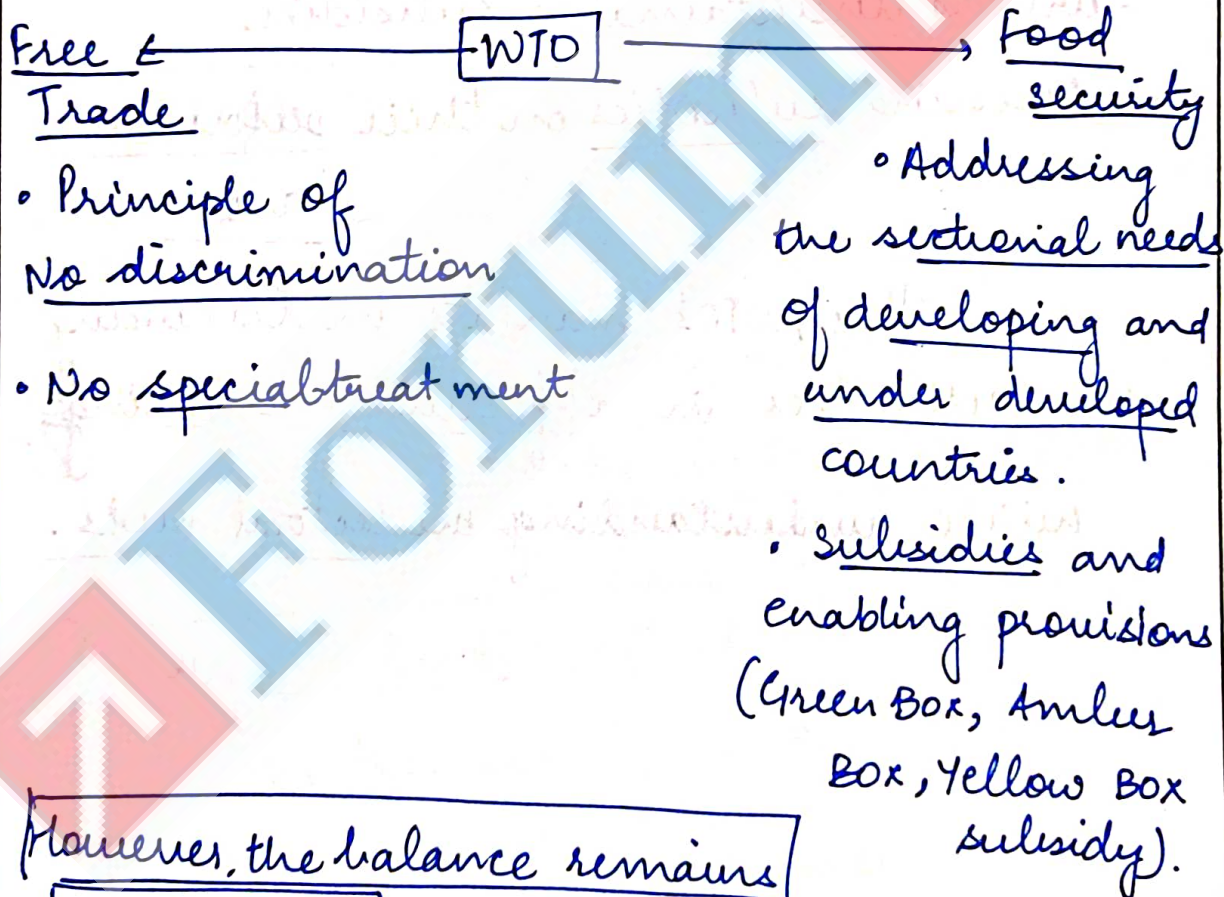 Free ← WTO → Food
Trade
security
• Principle of
No discrimination
• No special treatment
• Addressing
the sectional needs
of developing and
under developed
countries.
• Subsidies and
enabling provisions
(Green Box, Amber
Box, Yellow Box
subsidy).
However, the balance remains
Forum